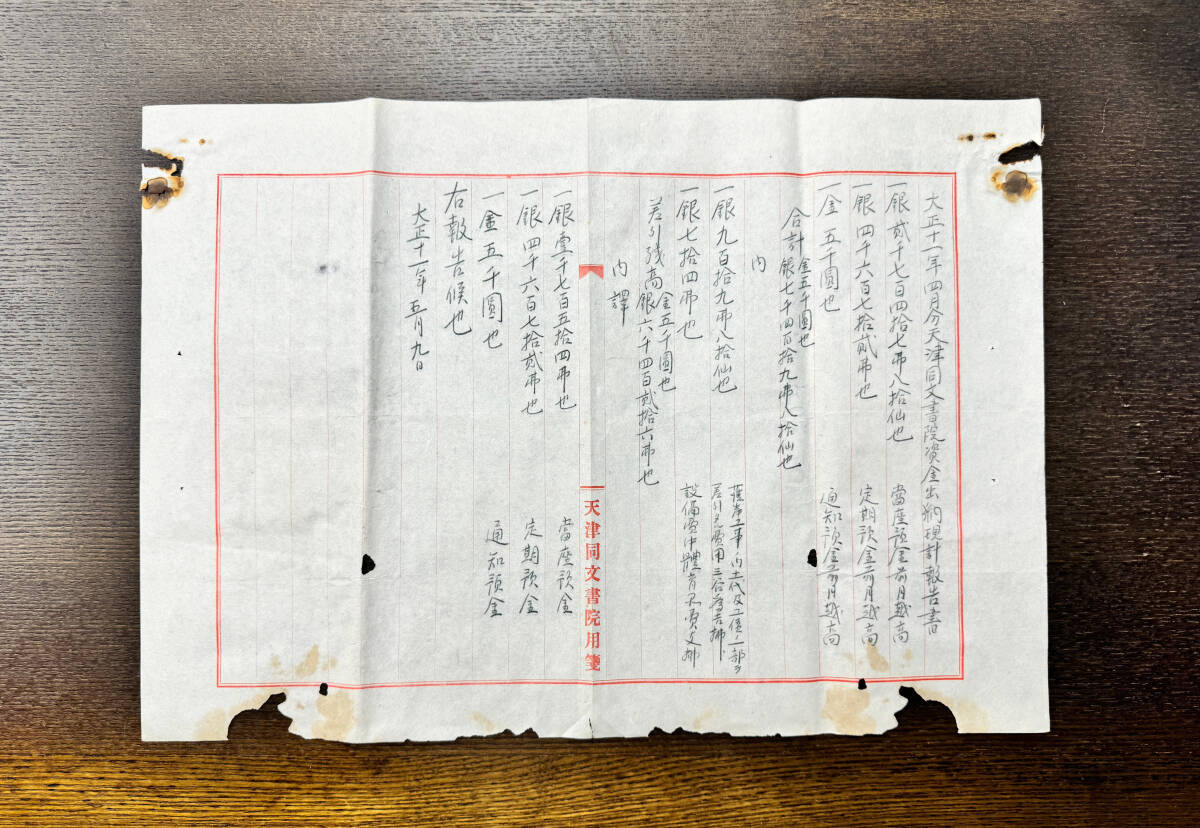 大正十一年四月分天津同文書院資金出納現計報告書
一銀貳千七百四拾七弗八拾仙也 當座預金前月越高
一銀四千六百七拾貳弗也 定期預金前月越高
一金五千圓也 通知預金前月越高
合計金五千圓也
銀七千四百拾九弗八拾仙也
内
一銀九百拾九弗八拾仙也
工事ノ内土代及工債一部
費用三谷
一銀七拾四弗也 設備費中體育
差引殘高金五千圓也
銀六千四百貳拾六弗也
内譯
天津同文書院用箋
一銀壹千七百五拾四弗也 當座預金
一銀四千六百七拾貳弗也 定期預金
一金五千圓也 通知預金
右報告候也
大正十一年五月九日